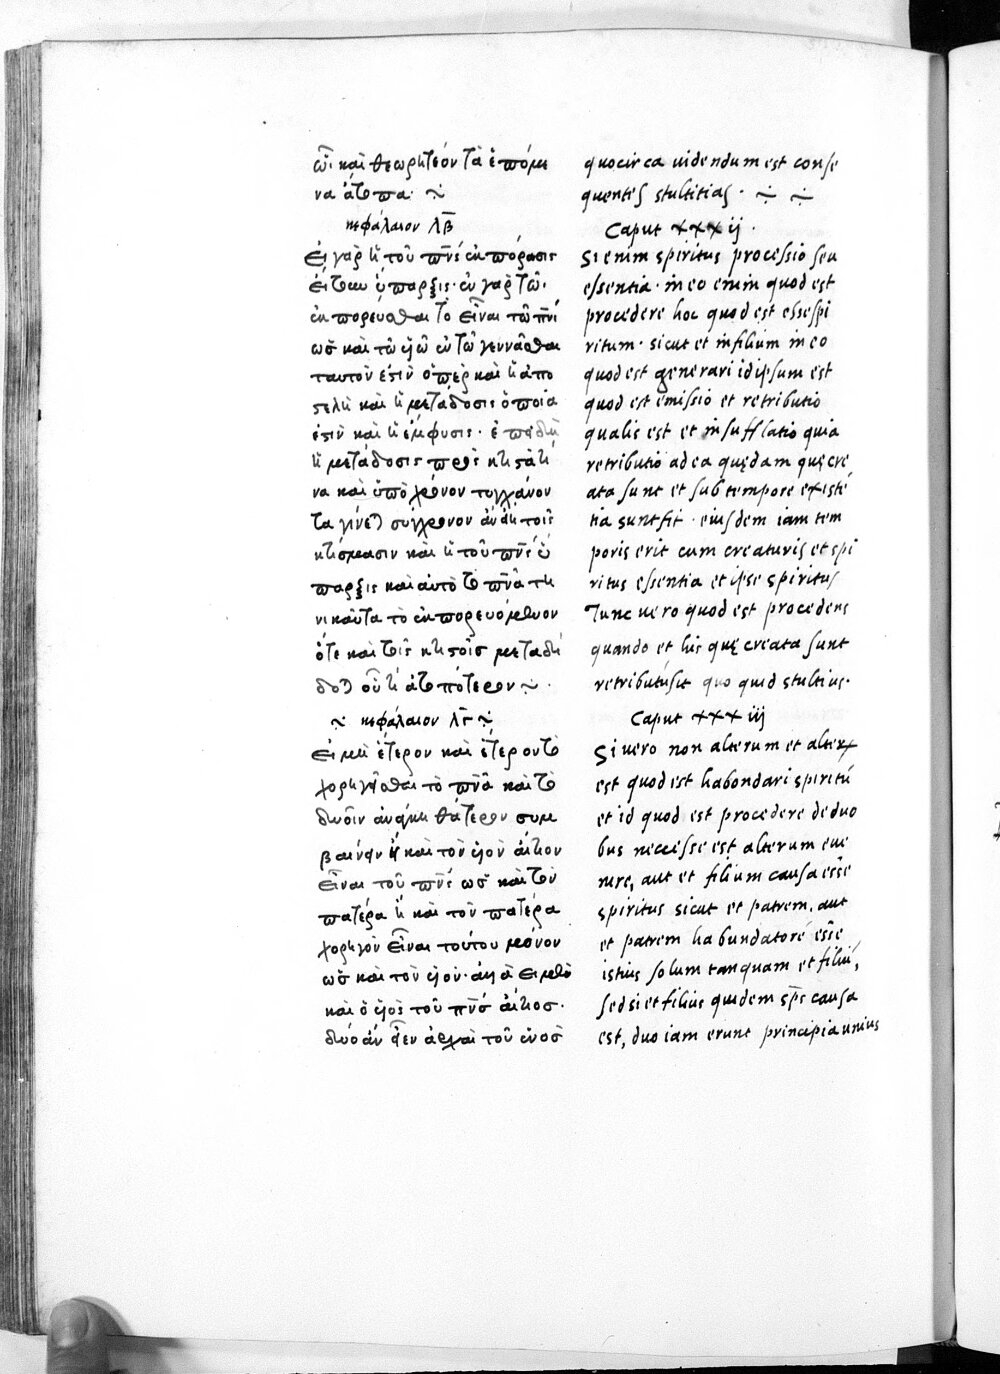 ῶι καὶ θεωρητέον τὰ ἑπόμε
να ἄτοπα
κεφάλαιον λβ̄
Εἰ γὰρ ἡ τοῦ πν̄ς ἐκπόρευσις
εἴτουν ὕπαρξις· ἐν γὰρ τῶι
ἐκπορεύεσθαι τὸ εἶναι τῶ πν̄ι
ὡς καὶ τῶ υἱῶ ἐν τῶ γεννᾶσθαι
ταυτόν ἐστιν ὅπερ καὶ ἡ ἀπο
στολὴ καὶ ἡ μετάδοσις ὁποία
ἐστὶν καὶ ἡ ἐμφύσισ· ἐπειδὴ
ἡ μετάδοσις πρὸς κτιστά τι
να καὶ ὑπὸ χρόνον τυγχάνον
τα γίνεται σύγχρονον ἀνάγκη τοῖς
κτίσμασιν καὶ ἡ τοῦ πν̄ς ὕ
παρξις καὶ αὐτὸ τὸ πν̄α τη
νικαῦτα τὸ ἐκπορευόμενον
ὅτε καὶ τοῖς κτιστοῖσ μεταδί
δοται οὗ τί ἀτοπότερον
κεφάλαιον λγ̄
Εἰ μὴ ἕτερον καὶ ἕτερον τὸ
χορηγεῖσθαι τὸ πν̄α καὶ τὸ
δυοῖν ἀνάγκη θάτερον συμ
βαίνειν ἢ καὶ τὸν υἱὸν αἴτιον
εἶναι τοῦ πν̄ς ὡς καὶ τὸν
πατέρα ἢ καὶ τὸν πατέρα
χορηγὸν εἶναι τούτου μόνον
ὡς καὶ τὸν υἱόν· ἀλλὰ εἰ μὲν
καὶ ὁ υἱὸς τοῦ πν̄ς αἴτιοσ·
δύο ἂν εἶεν ἀρχαὶ τοῦ ἑνὸσ
quocirca uidendum est conse
quentes stultitias ·
Caput xxxij ·
Si enim spiritus processio seu
essentia · in eo enim quod est
procedere hoc quod est esse spi
ritum · sicut et in filium in eo
quod est generari id ipsum est
quod est emissio et retributio
qualis est et insufflatio quia
retributio ad ea quędam quę cre
ata sunt et sub tempore existē
tia sunt fit · eiusdem iam tem
poris erit cum creaturis et spi
ritus essentia et ipse spiritus
Tunc uero quod est procedens
quando et his quę creata sunt
retributū sit quo quid stultius ·
Caput xxxiij
Si uero non alterum et alterū
est quod est habondari spiritū
et id quod est procedere de duo
bus necesse est alterum eue
nire, aut et filium causa esse
spiritus sicut et patrem, aut
et patrem habundatorē esse
istius solum tanquam et filiū,
sed si et filius quidem sp̄s causa
est, duo iam erunt principia unius